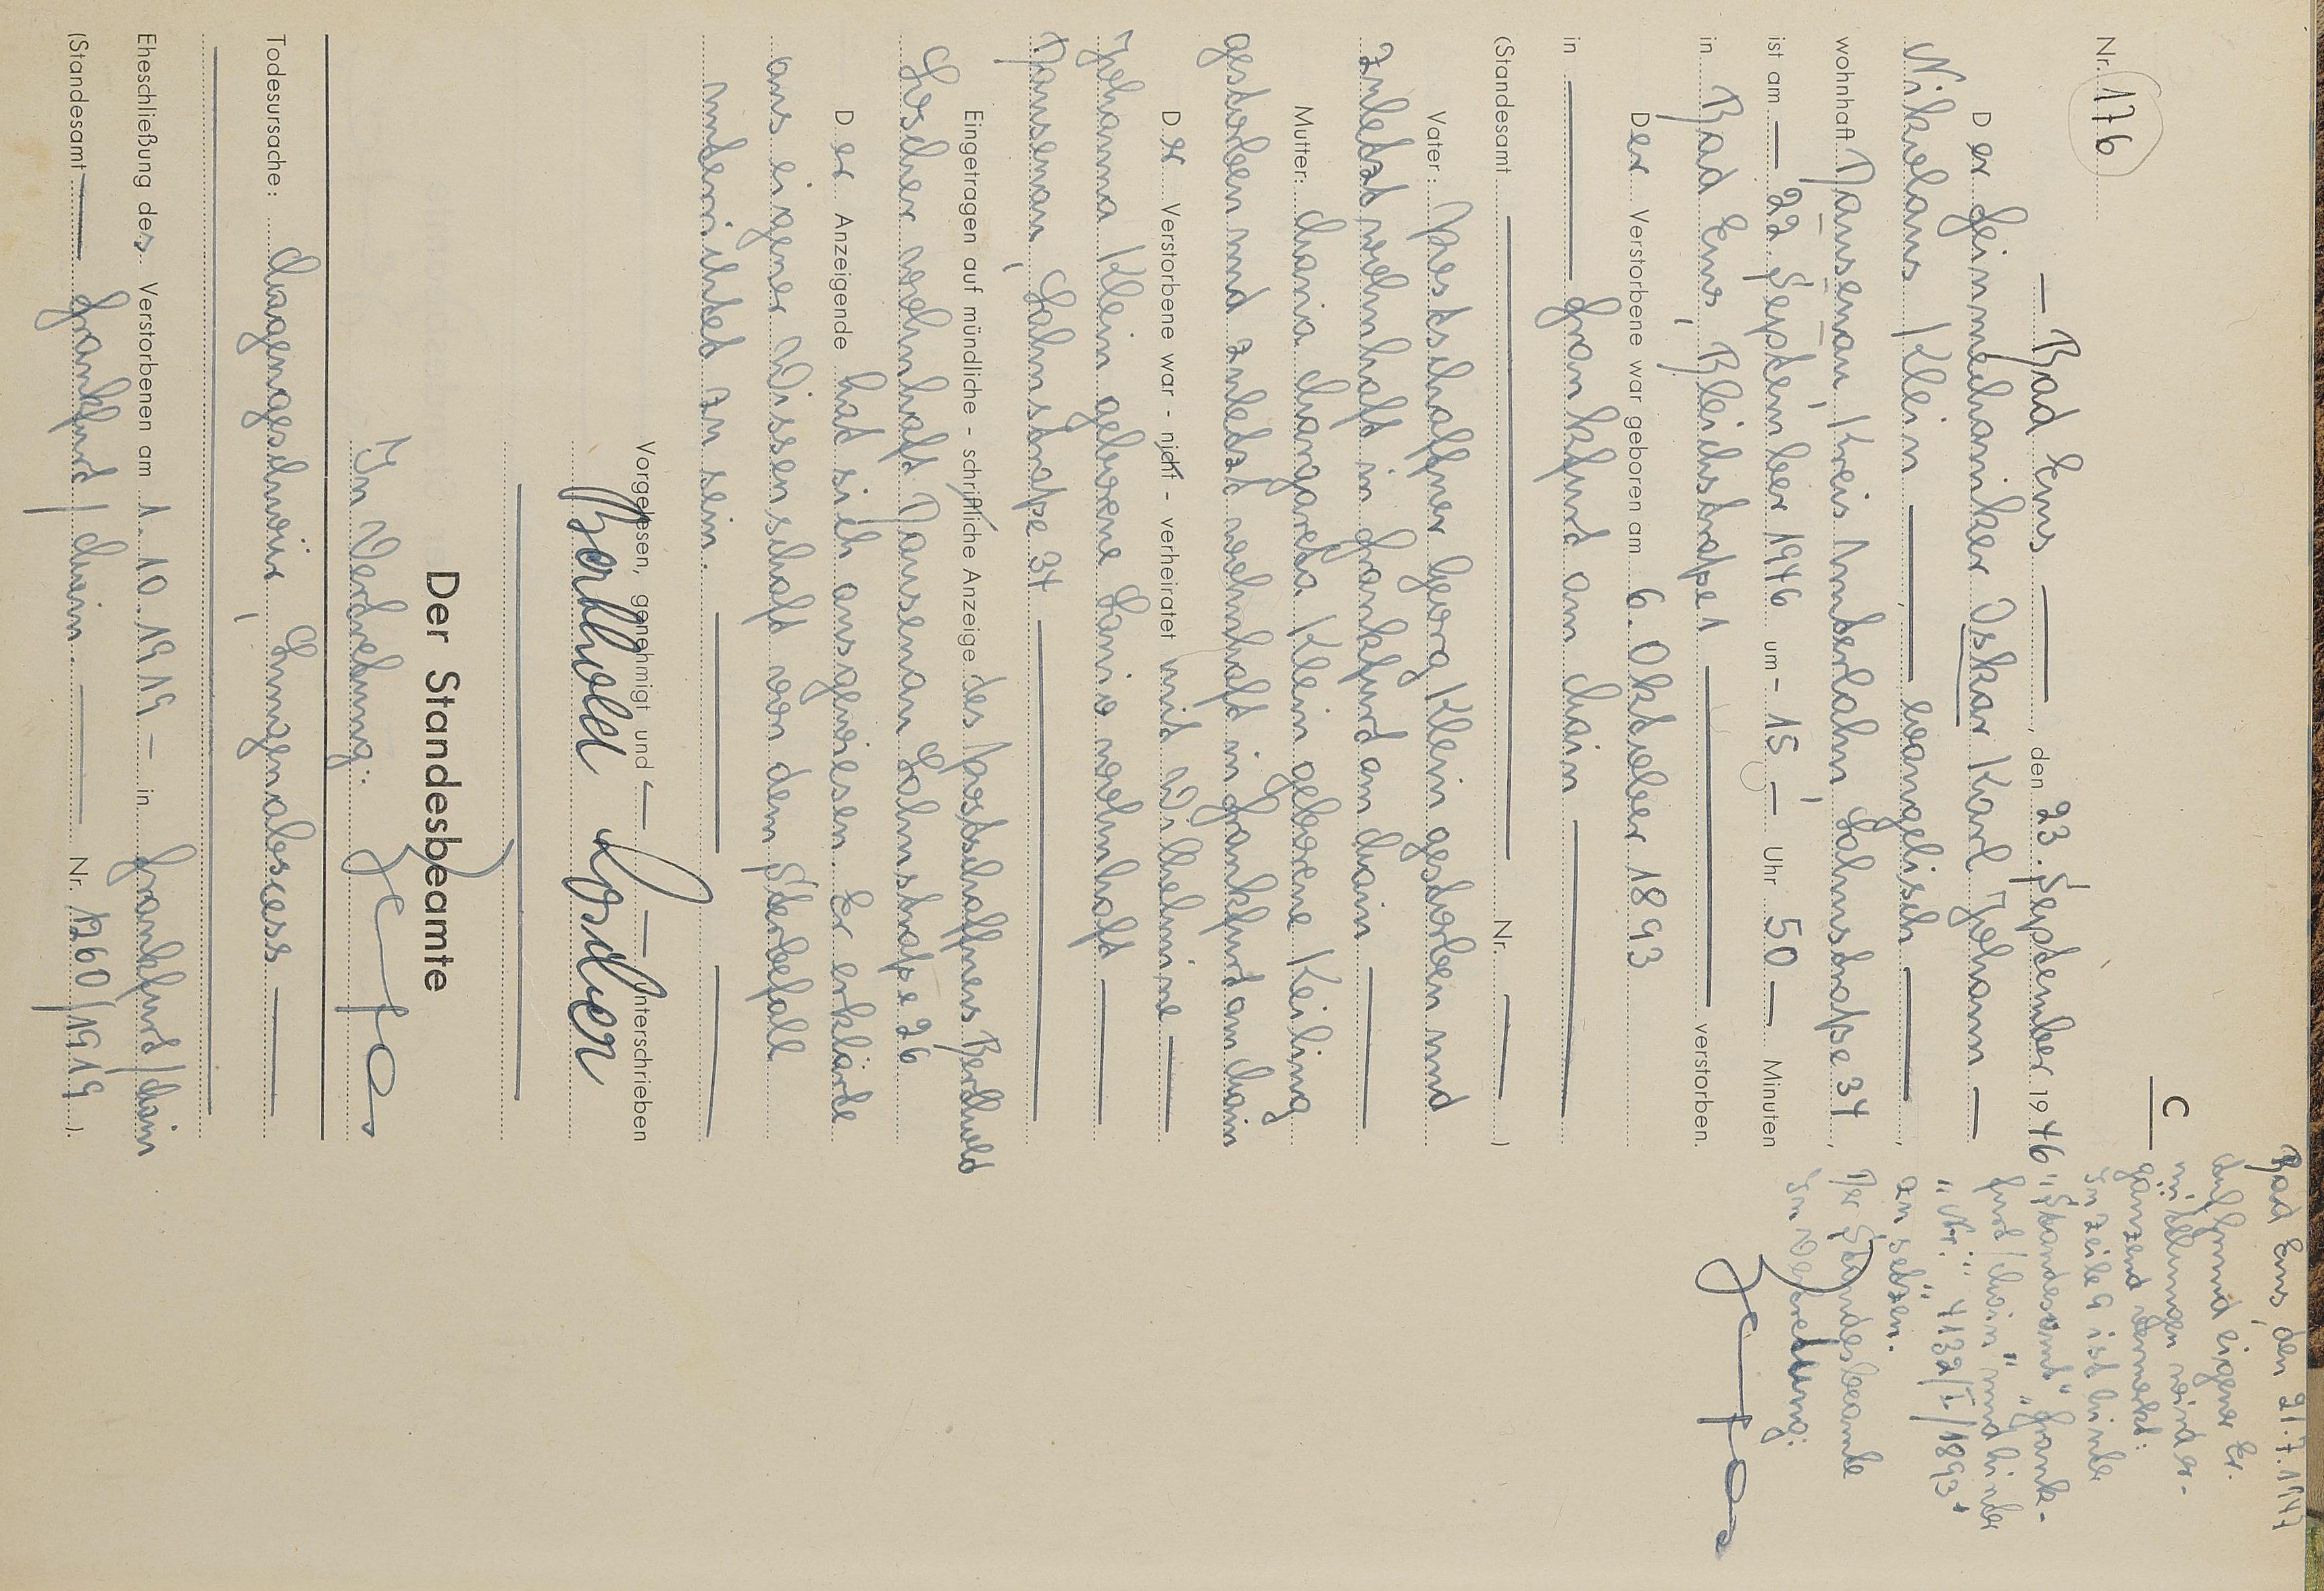 Nr. 176
C
— Bad Ems —, den 23. September 1946
Der Feinmechaniker Oskar Karl Johann —
Nikolaus Klein — evangelisch —,
wohnhaft Dausenau, Kreis Unterlahn, Lahnstraße 34,
ist am — 22. September 1946 um - 15 — Uhr 50 — Minuten
in Bad Ems, Bleichstraße 1 — verstorben.
Der Verstorbene war geboren am 6. Oktober 1893
in — Frankfurt am Main —
(Standesamt — Nr. —)
Vater: Postschaffner Georg Klein gestorben und
zuletzt wohnhaft in Frankfurt am Main —
Mutter: Maria Margareta Klein geborene Keiling
gestorben und zuletzt wohnhaft in Frankfurt am Main
Der Verstorbene war - nicht - verheiratet mit Wilhelmine —
Johanna Klein geborene Lanio wohnhaft —
Dausenau, Lahnstraße 34 —
Eingetragen auf mündliche - schriftliche Anzeige des Postschaffners Berthold
Loscher wohnhaft Dausenau Lahnstraße 26
Der Anzeigende hat sich ausgewiesen. Er erklärte
aus eigener Wissenschaft von dem Sterbefall
unterrichtet zu sein. —
Vorgelesen, genehmigt und — unterschrieben
Berthold Loscher
Der Standesbeamte
In Vertretung:
Todesursache: Magengeschwür, Lungenabscess —
Eheschließung des Verstorbenen am 1. 10. 1919 — in Frankfurt/Main
(Standesamt — Frankfurt/Main. — Nr. 1260/1919).
Bad Ems, den 21.7.1947
Auf Grund eigener Er-
mittelungen wird er-
gänzend vermerkt:
In Zeile 9 ist hinter
"Standesamt" "Frank-
furt/Main" und hinter
"Nr." "4132/I/1893"
zu setzen.
Der Standesbeamte
In Vertretung: